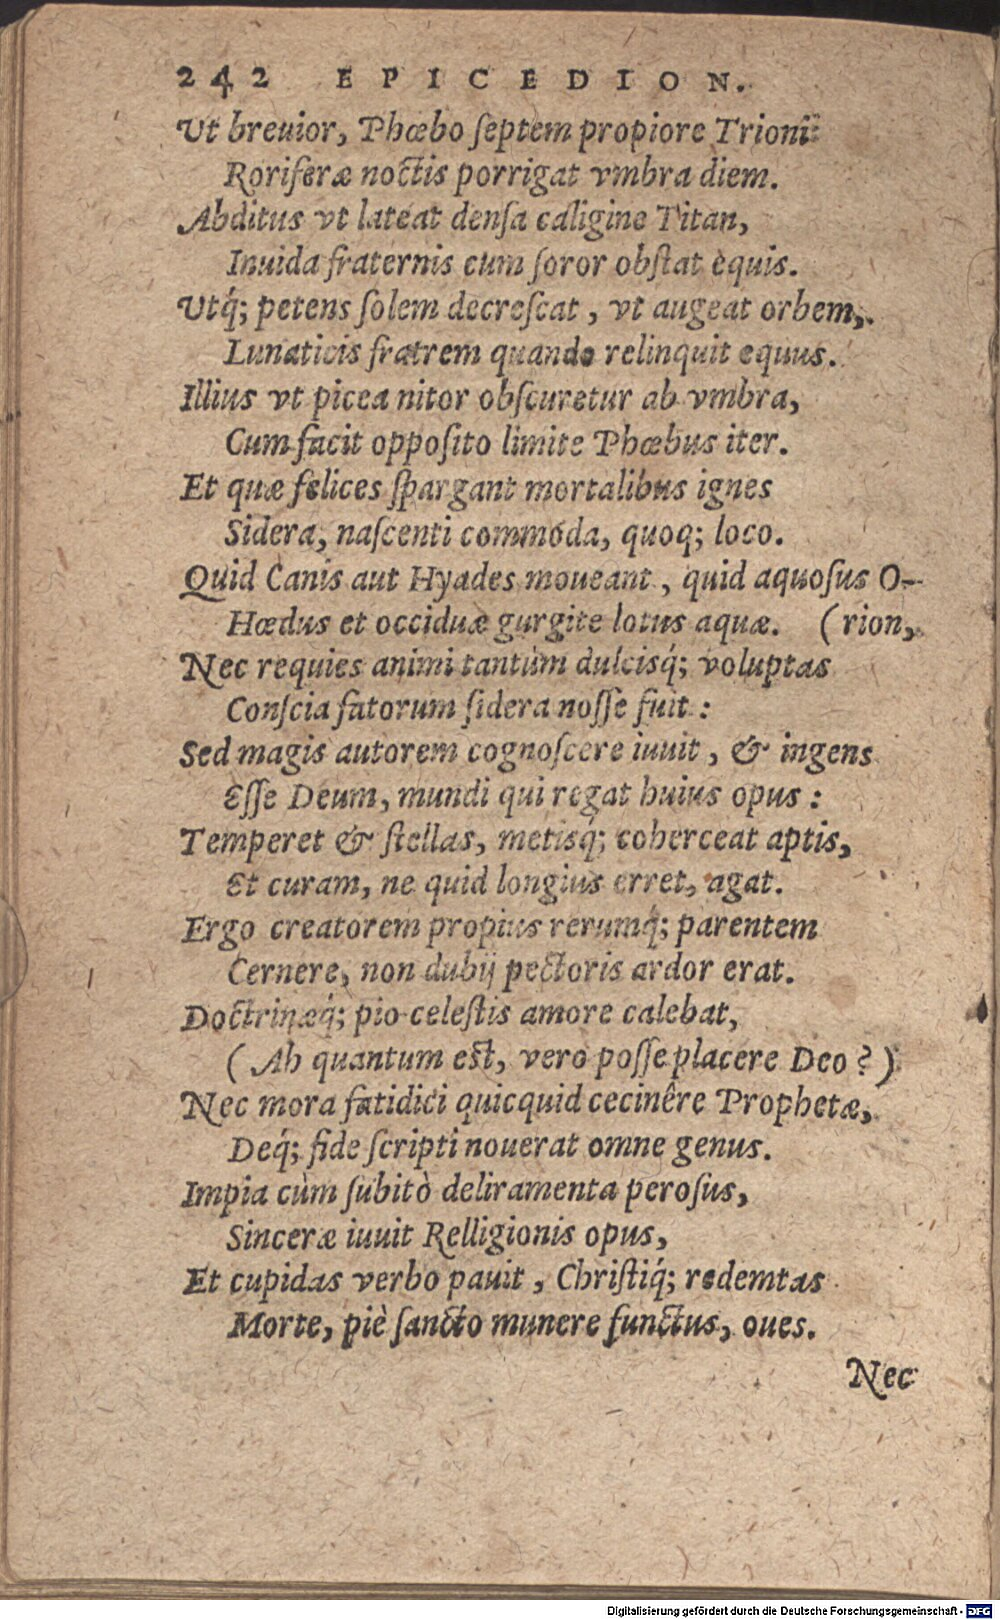 242 EPICEDION.
Vt breuior, Phœbo ſeptem propiore Trioni
Roriferæ noctis porrigat vmbra diem.
Abditus vt lateat denſa caligine Titan,
Inuida fraternis cum ſoror obſtat èquis.
Vtq́; petens ſolem decreſcat, vt augeat orbem,
Lunaticis fratrem quando relinquit equus.
Illius vt picea nitor obſcuretur ab vmbra,
Cum facit oppoſito limite Phœbus iter.
Et quæ felices ſpargant mortalibus ignes
Sidera, naſcenti commóda, quoq; loco.
Quid Canis aut Hyades moueant, quid aquoſus O-
Hœdus et occiduæ gurgite lotus aquæ. (rion,
Nec requies animi tantùm dulcisq́; voluptas
Conſcia fatorum ſidera noſſe fuit:
Sed magis autorem cognoſcere iuuit, & ingens
Eſſe Deum, mundi qui regat huius opus:
Temperet & ſtellas, metisq́; coherceat aptis,
Et curam, ne quid longius erret, agat.
Ergo creatorem propius rerumq́; parentem
Cernere, non dubij pectoris ardor erat.
Doctrinæq́; pio celeſtis amore calebat,
(Ah quantum eſt, vero poſſe placere Deo?)
Nec mora fatidici quicquid cecinêre Prophetæ,
Deq́; fide ſcripti nouerat omne genus.
Impia cùm ſubitò deliramenta peroſus,
Sinceræ iuuit Relligionis opus,
Et cupidas verbo pauit, Chriſtiq́; redemtas
Morte, piè ſancto munere functus, oues.
Nec
Digitalisierung gefördert durch die Deutsche Forschungsgemeinschaft - DFG